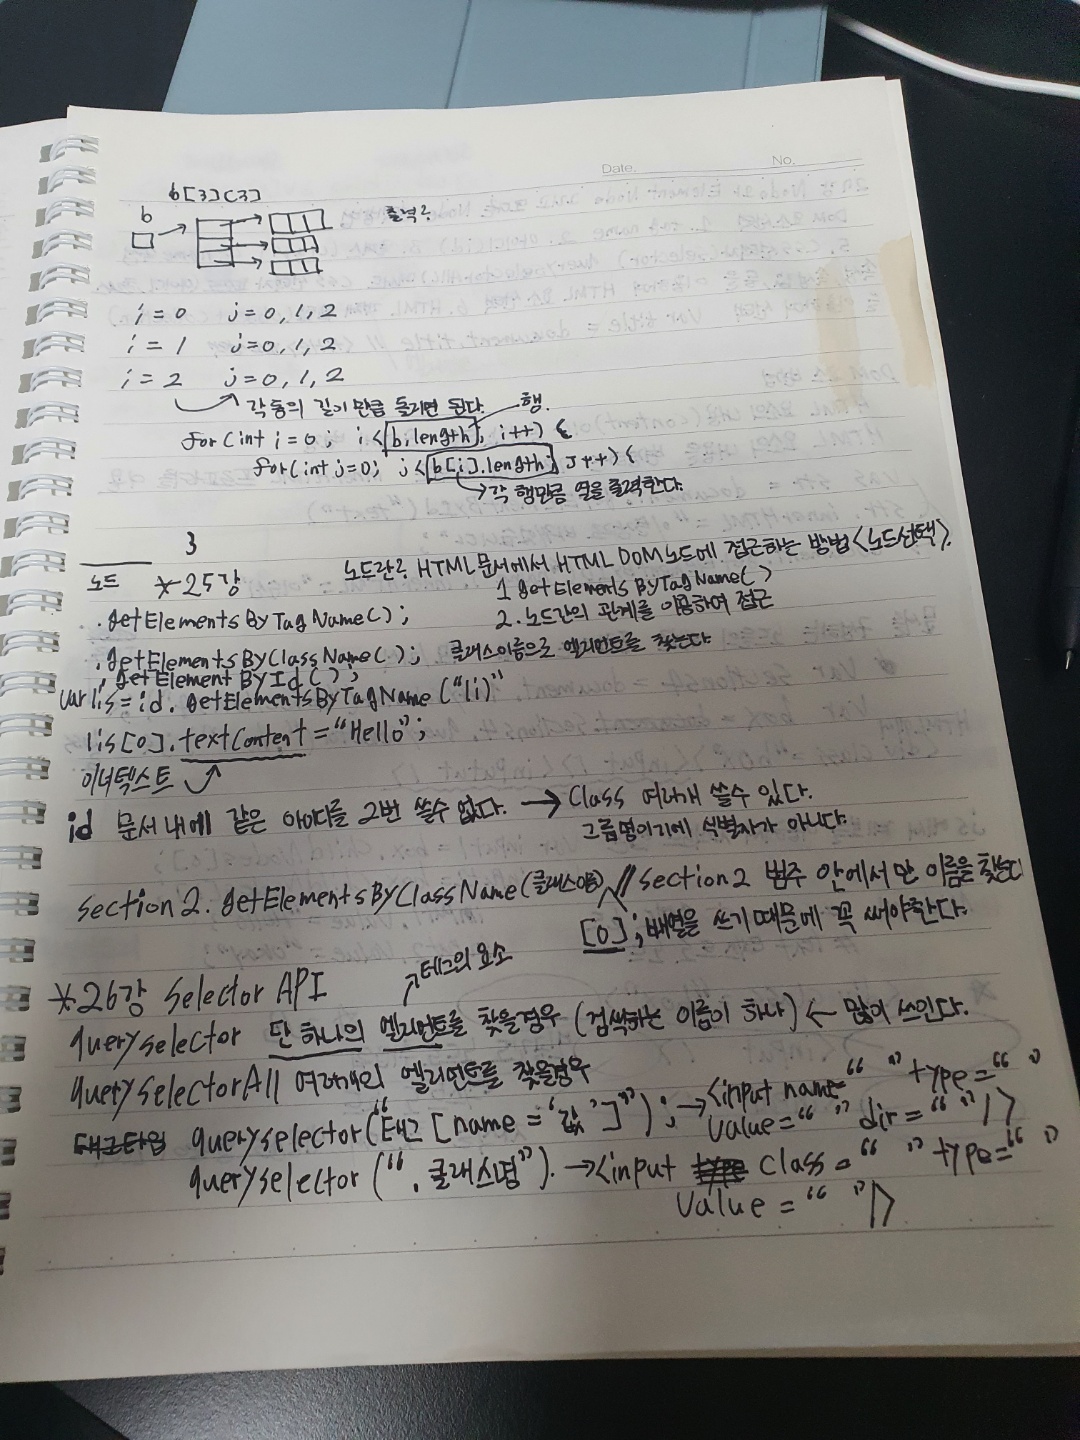 Date. No.
b[3][3]
b 출력?
i = 0 j = 0, 1, 2
i = 1 j = 0, 1, 2
i = 2 j = 0, 1, 2
각동의 길이 만큼 돌리면 된다. 행.
for (int i = 0; i < b.length; i++) {
for (int j = 0; j < b[i].length; j++) {
각 행만큼 열을 출력한다.
3
노드란? HTML 문서에서 HTML DOM 노드에 접근하는 방법 <노드선택>.
노드 *25강
1. getElementsByTagName( )
.getElementsByTagName( );
2. 노드간의 관계를 이용하여 접근
.getElementsByClassName( ); 클래스이름으로 엘리먼트를 찾는다
.getElementById( );
var lis = id.getElementsByTagName("li")
lis[0].textContent = "Hello";
이너텍스트
id 문서 내에 같은 아이디를 2번 쓸수 없다. → Class 여러개 쓸수 있다.
그룹명이기에 식별자가 아니다.
section2.getElementsByClassName(클래스이름) // section2 범주 안에서만 이름을 찾는다
[0]; 배열을 쓰기 때문에 꼭 써야한다.
테그의 요소
*26강 Selector API
queryselector 단 하나의 엘리먼트를 찾을경우 (검색하는 이름이 하나) ← 많이 쓰인다.
querySelectorAll 여러개의 엘리먼트를 찾을경우
태그타입 queryselector("태그[name='값']"); → <input name=" " type=" "
value=" " dir=" "/>
queryselector(".클래스명"). → <input type class=" " type=" "
value=" "/>